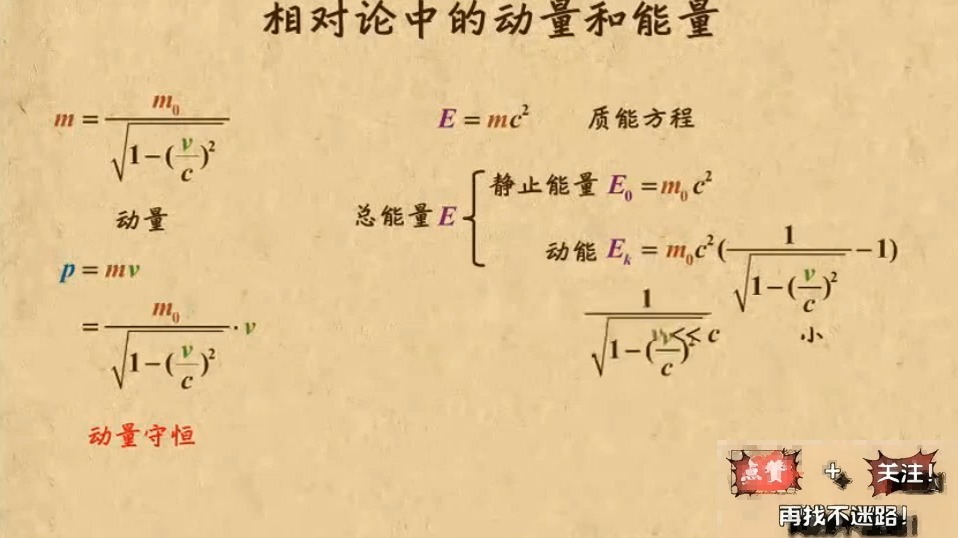 相对论中的动量和能量
m = m₀ / √(1−(v/c)²)
动量
p = mv
= m₀ / √(1−(v/c)²) · v
动量守恒
E = mc² 质能方程
总能量E
静止能量 E₀ = m₀c²
动能 Eₖ = m₀c²(1 / √(1−(v/c)²) −1)
1 / √(1−(v/c)²)
v<<c
小
点赞 + 关注!
再找不迷路!